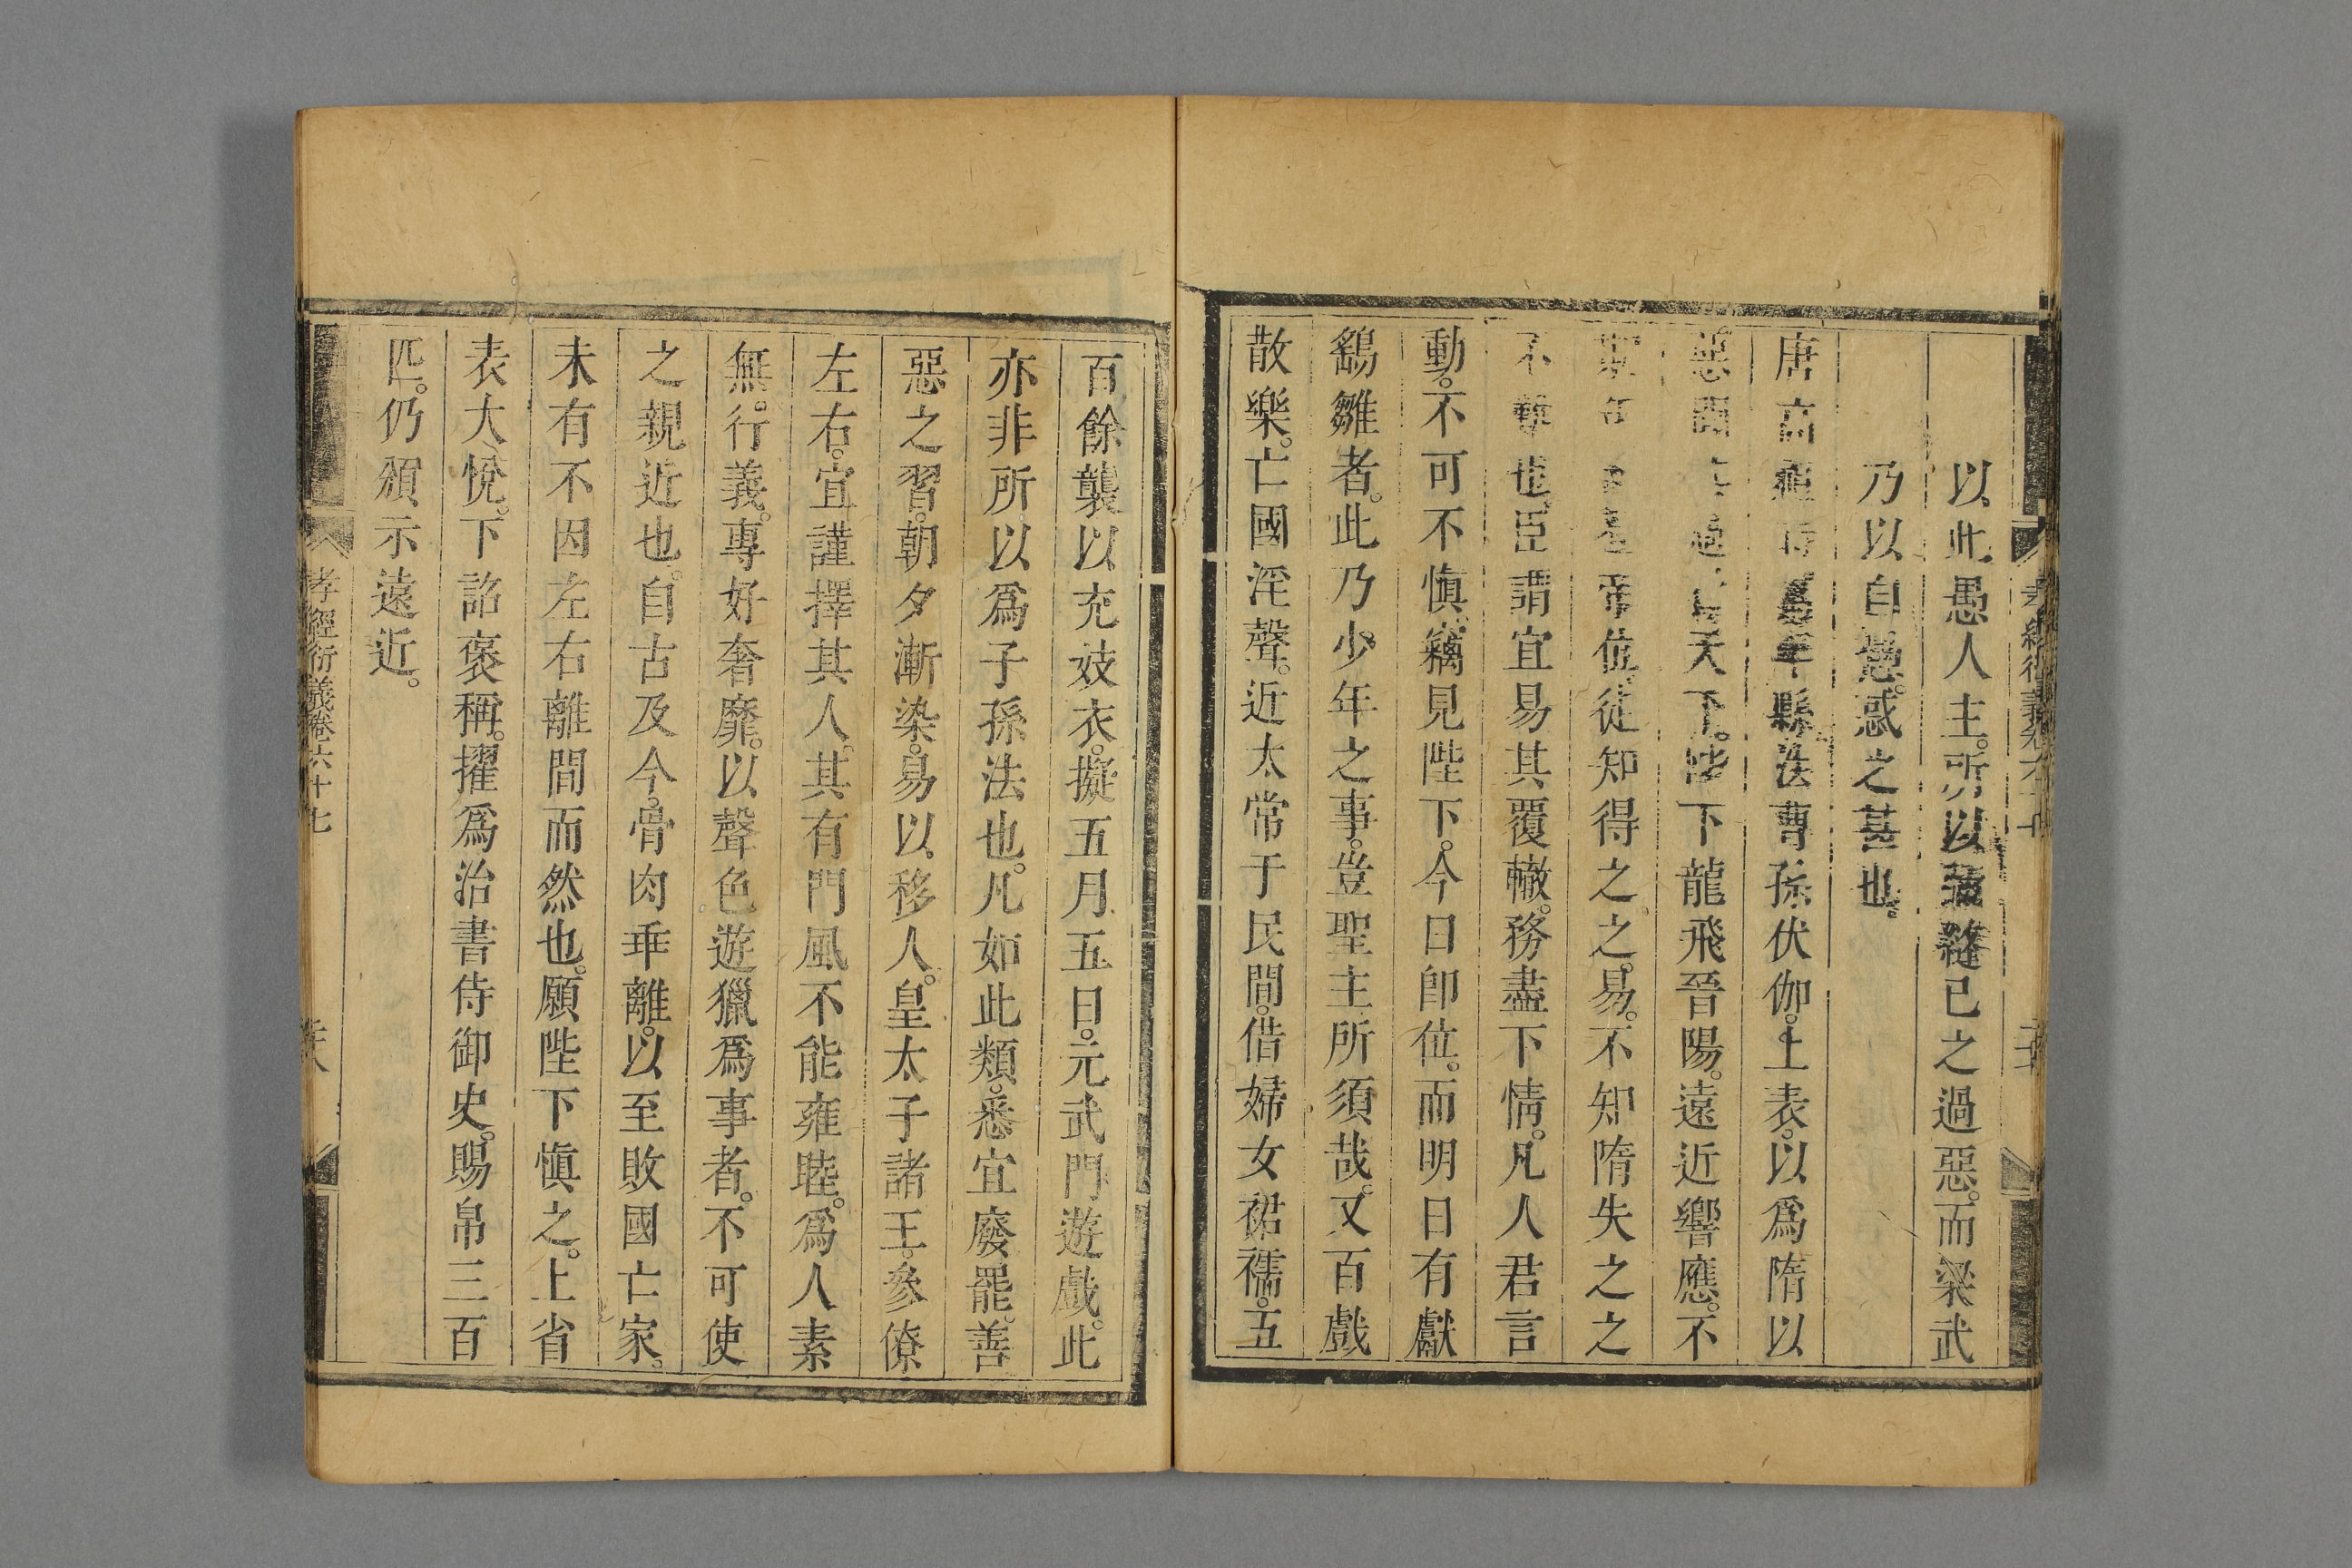 以此愚人主。所以彌縫己之過惡。而梁武
乃以自愚。惑之甚也。
唐高祖時萬年縣法曹孫伏伽。上表。以爲隋以
惡聞其過亡天下。陛下龍飛晉陽。遠近響應。不
年 登帝位。徒知得之之易。不知隋失之之
不難也。臣謂宜易其覆轍。務盡下情。凡人君言
動。不可不慎。竊見陛下。今日卽位。而明日有獻
鷂雛者。此乃少年之事。豈聖主所須哉。又百戲
散樂。亡國淫聲。近太常于民間。借婦女裙襦。五
孝經衍義卷六十七
百餘襲以充妓衣。擬五月五日。元武門遊戲。此
亦非所以爲子孫法也。凡如此類。悉宜廢罷。善
惡之習。朝夕漸染。易以移人。皇太子諸王。參僚
左右。宜謹擇其人。其有門風不能雍睦。爲人素
無。行義。專好奢靡。以聲色遊獵爲事者。不可使
之親近也。自古及今。骨肉乖離。以至敗國亡家。
未有不因左右離間而然也。願陛下慎之。上省
表大悅。下詔褒稱。擢爲治書侍御史。賜帛三百
匹。仍頒示遠近。
孝經衍義卷六十七